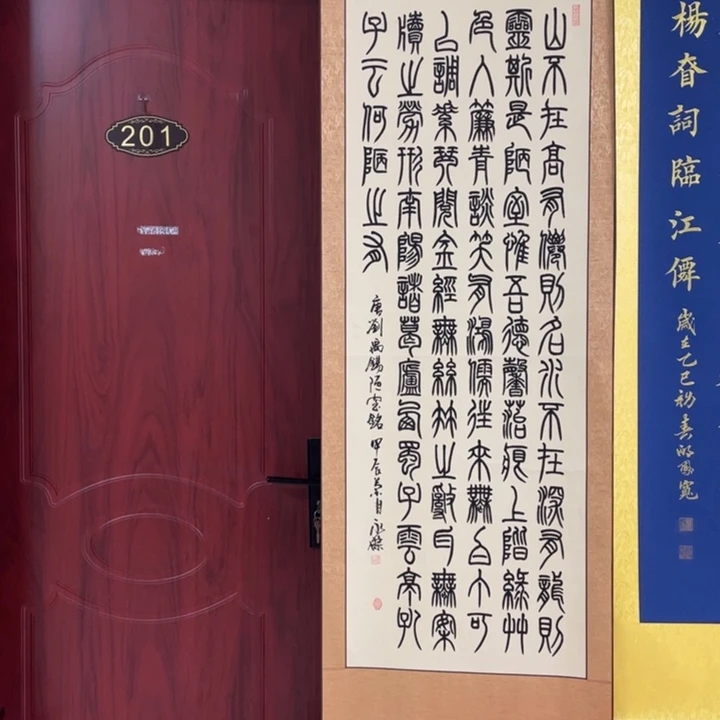 201
山不在高有僊則名水不在深有龍則
靈斯是陋室惟吾德馨苔痕上階綠艸
色入簾青談笑有鴻儒往來無白丁可
以調素琴閱金經無絲竹之亂耳無案
牘之勞形南陽諸葛廬西蜀子雲亭孔
子云何陋之有
唐劉禹錫陋室銘 甲辰
楊眘詞臨江僊
歲在乙巳初春